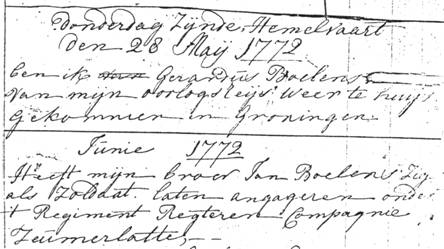 Donderdag Zijnde Hemelvaart
den 28 May 1772
ben ik Gerardus Boelens
van mijn oorlogs leys weer te huys
gekommen in Groningen
Junie 1772
Heeft mijn broer Jan Boelens Zig
als Zoldaat laten angageren onder
't Regiment Regteren Compagnie